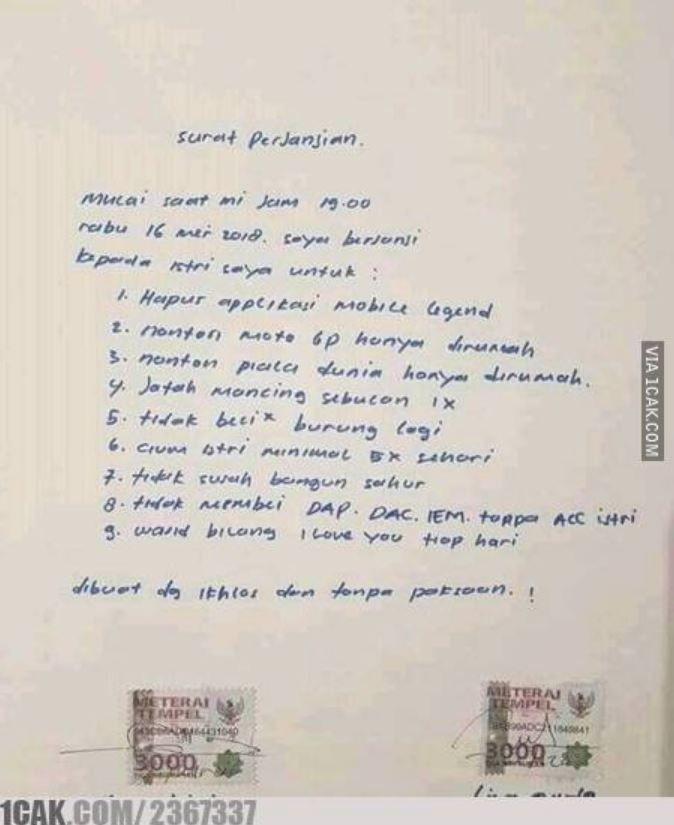 surat Perjanjian.
Mulai saat ini Jam 19.00
rabu 16 mei 2018. saya berjanji
kepada istri saya untuk :
1. Hapus applikasi mobile legend
2. nonton moto GP hanya dirumah
3. nonton piala dunia hanya dirumah.
4. Jatah mancing sebulan 1x
5. tidak beli x burung lagi
6. cium istri minimal 5x sehari
7. tidak susah bangun sahur
8. tidak membeli DAP. DAC. IEM. tanpa ACC istri
9. wajib bilang I Love You tiap hari
dibuat dg ikhlas dan tanpa paksaan. !
METERAI
TEMPEL
3000
METERAI
TEMPEL
3000
VIA 1CAK.COM
1CAK.COM/2367337